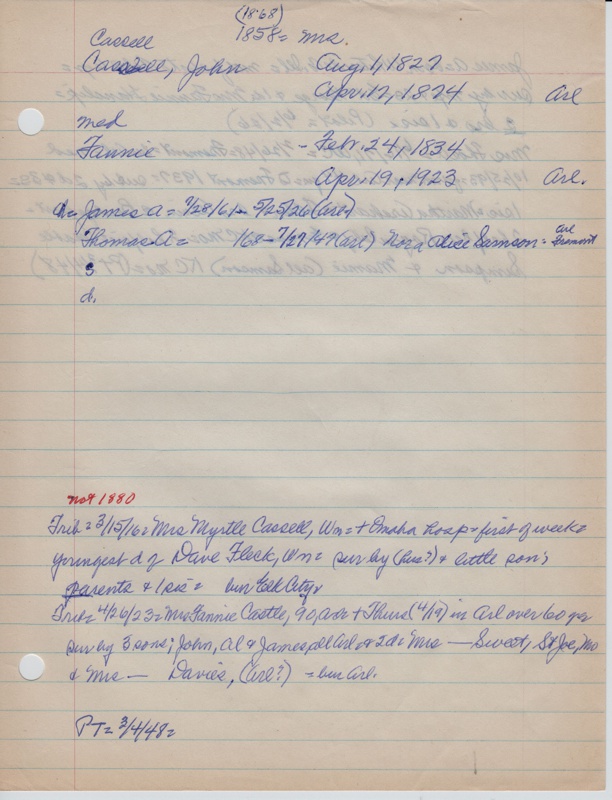 (1868)
Cassell 1858= Ms.
Cassell, John Aug. 1, 1827
Apr. 17, 1874 Arl
med
Fannie - Feb. 24, 1834
Apr. 19, 1923 Arl.
James A = 7/28/61 - 5/25/26 (Arl)
Thomas A = 168 - 7/27/47 (Arl) Nora Alice Samson = Arl Fremont
s
d.
not 1880
Trib = 3/15/16 = Mrs Myrtle Cassell, Wn = + Omaha hosp = first of week =
youngest d of Dave Fleck, Wn = sur by (hus?) & little son;
parents & 1 sis = bur Elk City
Trib = 4/26/23 = Mrs Fannie Castle, 90, + Thurs (4/19) in Arl over 60 yr
sur by 3 sons; John, Al & James, all Arl & 2 d = Mrs — Sweet, St Joe, Mo
& Mrs — Davies, (Arl?) = bur Arl.
PT = 3/4/48 =